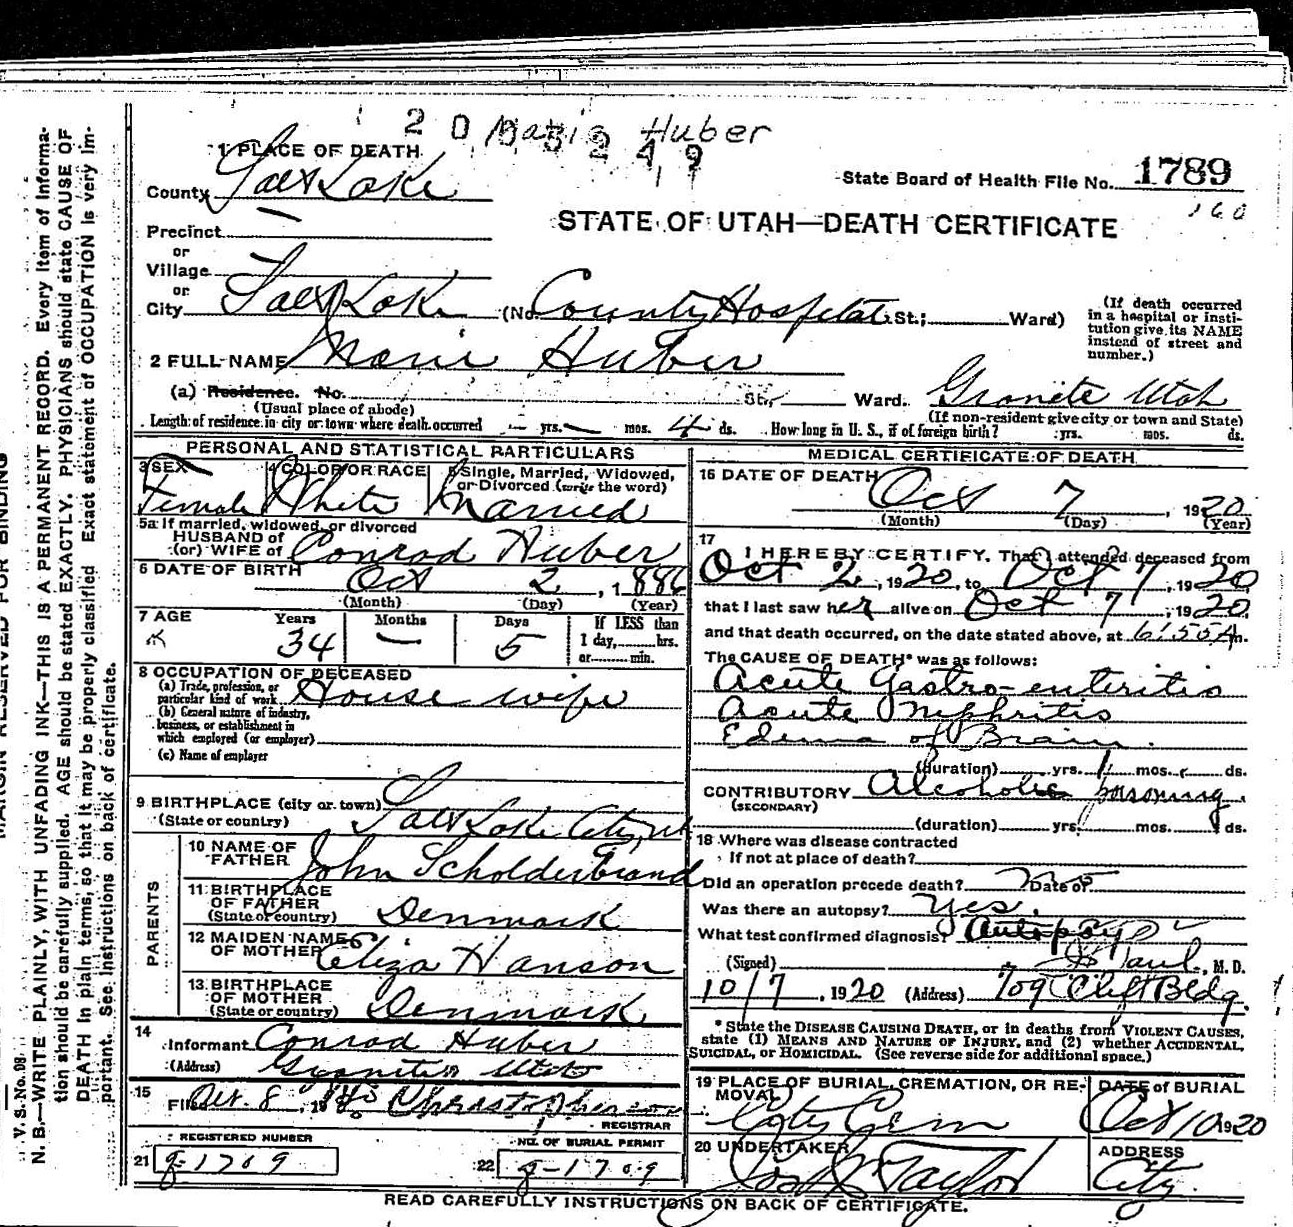 2 0 0 5 2 4 9
Marie Huber
1 PLACE OF DEATH
County Salt Lake
State Board of Health File No. 1789
160
STATE OF UTAH—DEATH CERTIFICATE
Precinct
or
Village
or
City Salt Lake (No. County Hospital St.; Ward)
(If death occurred in a hospital or institution give its NAME instead of street and number.)
2 FULL NAME Marie Huber
(a) Residence. No. St., Ward. Granite Utah
(Usual place of abode) (If non-resident give city or town and State)
Length of residence in city or town where death occurred — yrs. — mos. 4 ds. How long in U. S., if of foreign birth? yrs. mos. ds.
PERSONAL AND STATISTICAL PARTICULARS
3 SEX Female
4 COLOR OR RACE White
5 Single, Married, Widowed, or Divorced (write the word) Married
5a If married, widowed, or divorced
HUSBAND of
(or) WIFE of Conrad Huber
6 DATE OF BIRTH Oct 2, 1886
(Month) (Day) (Year)
7 AGE Years 34 Months — Days 5 If LESS than 1 day, hrs. or min.
8 OCCUPATION OF DECEASED
(a) Trade, profession, or particular kind of work House wife
(b) General nature of industry, business, or establishment in which employed (or employer)
(c) Name of employer
9 BIRTHPLACE (city or town)
(State or country) Salt Lake City, Ut
PARENTS
10 NAME OF FATHER John Scholderbrand
11 BIRTHPLACE OF FATHER (State or country) Denmark
12 MAIDEN NAME OF MOTHER Eliza Hanson
13 BIRTHPLACE OF MOTHER (State or country) Denmark
14
Informant Conrad Huber
(Address) Granite Utah
15
Filed Oct. 8, 19
REGISTRAR
REGISTERED NUMBER
21 g-1709
NO. OF BURIAL PERMIT
22 g-1709
MEDICAL CERTIFICATE OF DEATH
16 DATE OF DEATH Oct 7, 1920
(Month) (Day) (Year)
17
I HEREBY CERTIFY, That I attended deceased from
Oct 2, 1920, to Oct 7, 1920
that I last saw her alive on Oct 7, 1920
and that death occurred, on the date stated above, at 6:55 A m.
The CAUSE OF DEATH* was as follows:
Acute Gastro-enteritis
Acute Niphritis
Edema of Brain.
(duration) yrs. 1 mos. ds.
CONTRIBUTORY Alcoholic poisoning.
(SECONDARY)
(duration) yrs. mos. ds.
18 Where was disease contracted
If not at place of death?
Did an operation precede death? no Date of
Was there an autopsy? Yes.
What test confirmed diagnosis? Autopsy
(Signed) Paul, M. D.
10/7, 1920 (Address) 709 Clift Bldg.
*State the DISEASE CAUSING DEATH, or in deaths from VIOLENT CAUSES, state (1) MEANS AND NATURE OF INJURY, and (2) whether ACCIDENTAL, SUICIDAL, or HOMICIDAL. (See reverse side for additional space.)
19 PLACE OF BURIAL, CREMATION, OR REMOVAL City Cem
DATE of BURIAL Oct 10 1920
20 UNDERTAKER Jos Taylor
ADDRESS City.
READ CAREFULLY INSTRUCTIONS ON BACK OF CERTIFICATE.
MARGIN RESERVED FOR BINDING
V. S. No. 98.
N. B.—WRITE PLAINLY, WITH UNFADING INK—THIS IS A PERMANENT RECORD. Every item of information should be carefully supplied. AGE should be stated EXACTLY. PHYSICIANS should state CAUSE OF DEATH in plain terms, so that it may be properly classified. Exact statement of OCCUPATION is very important. See instructions on back of certificate.